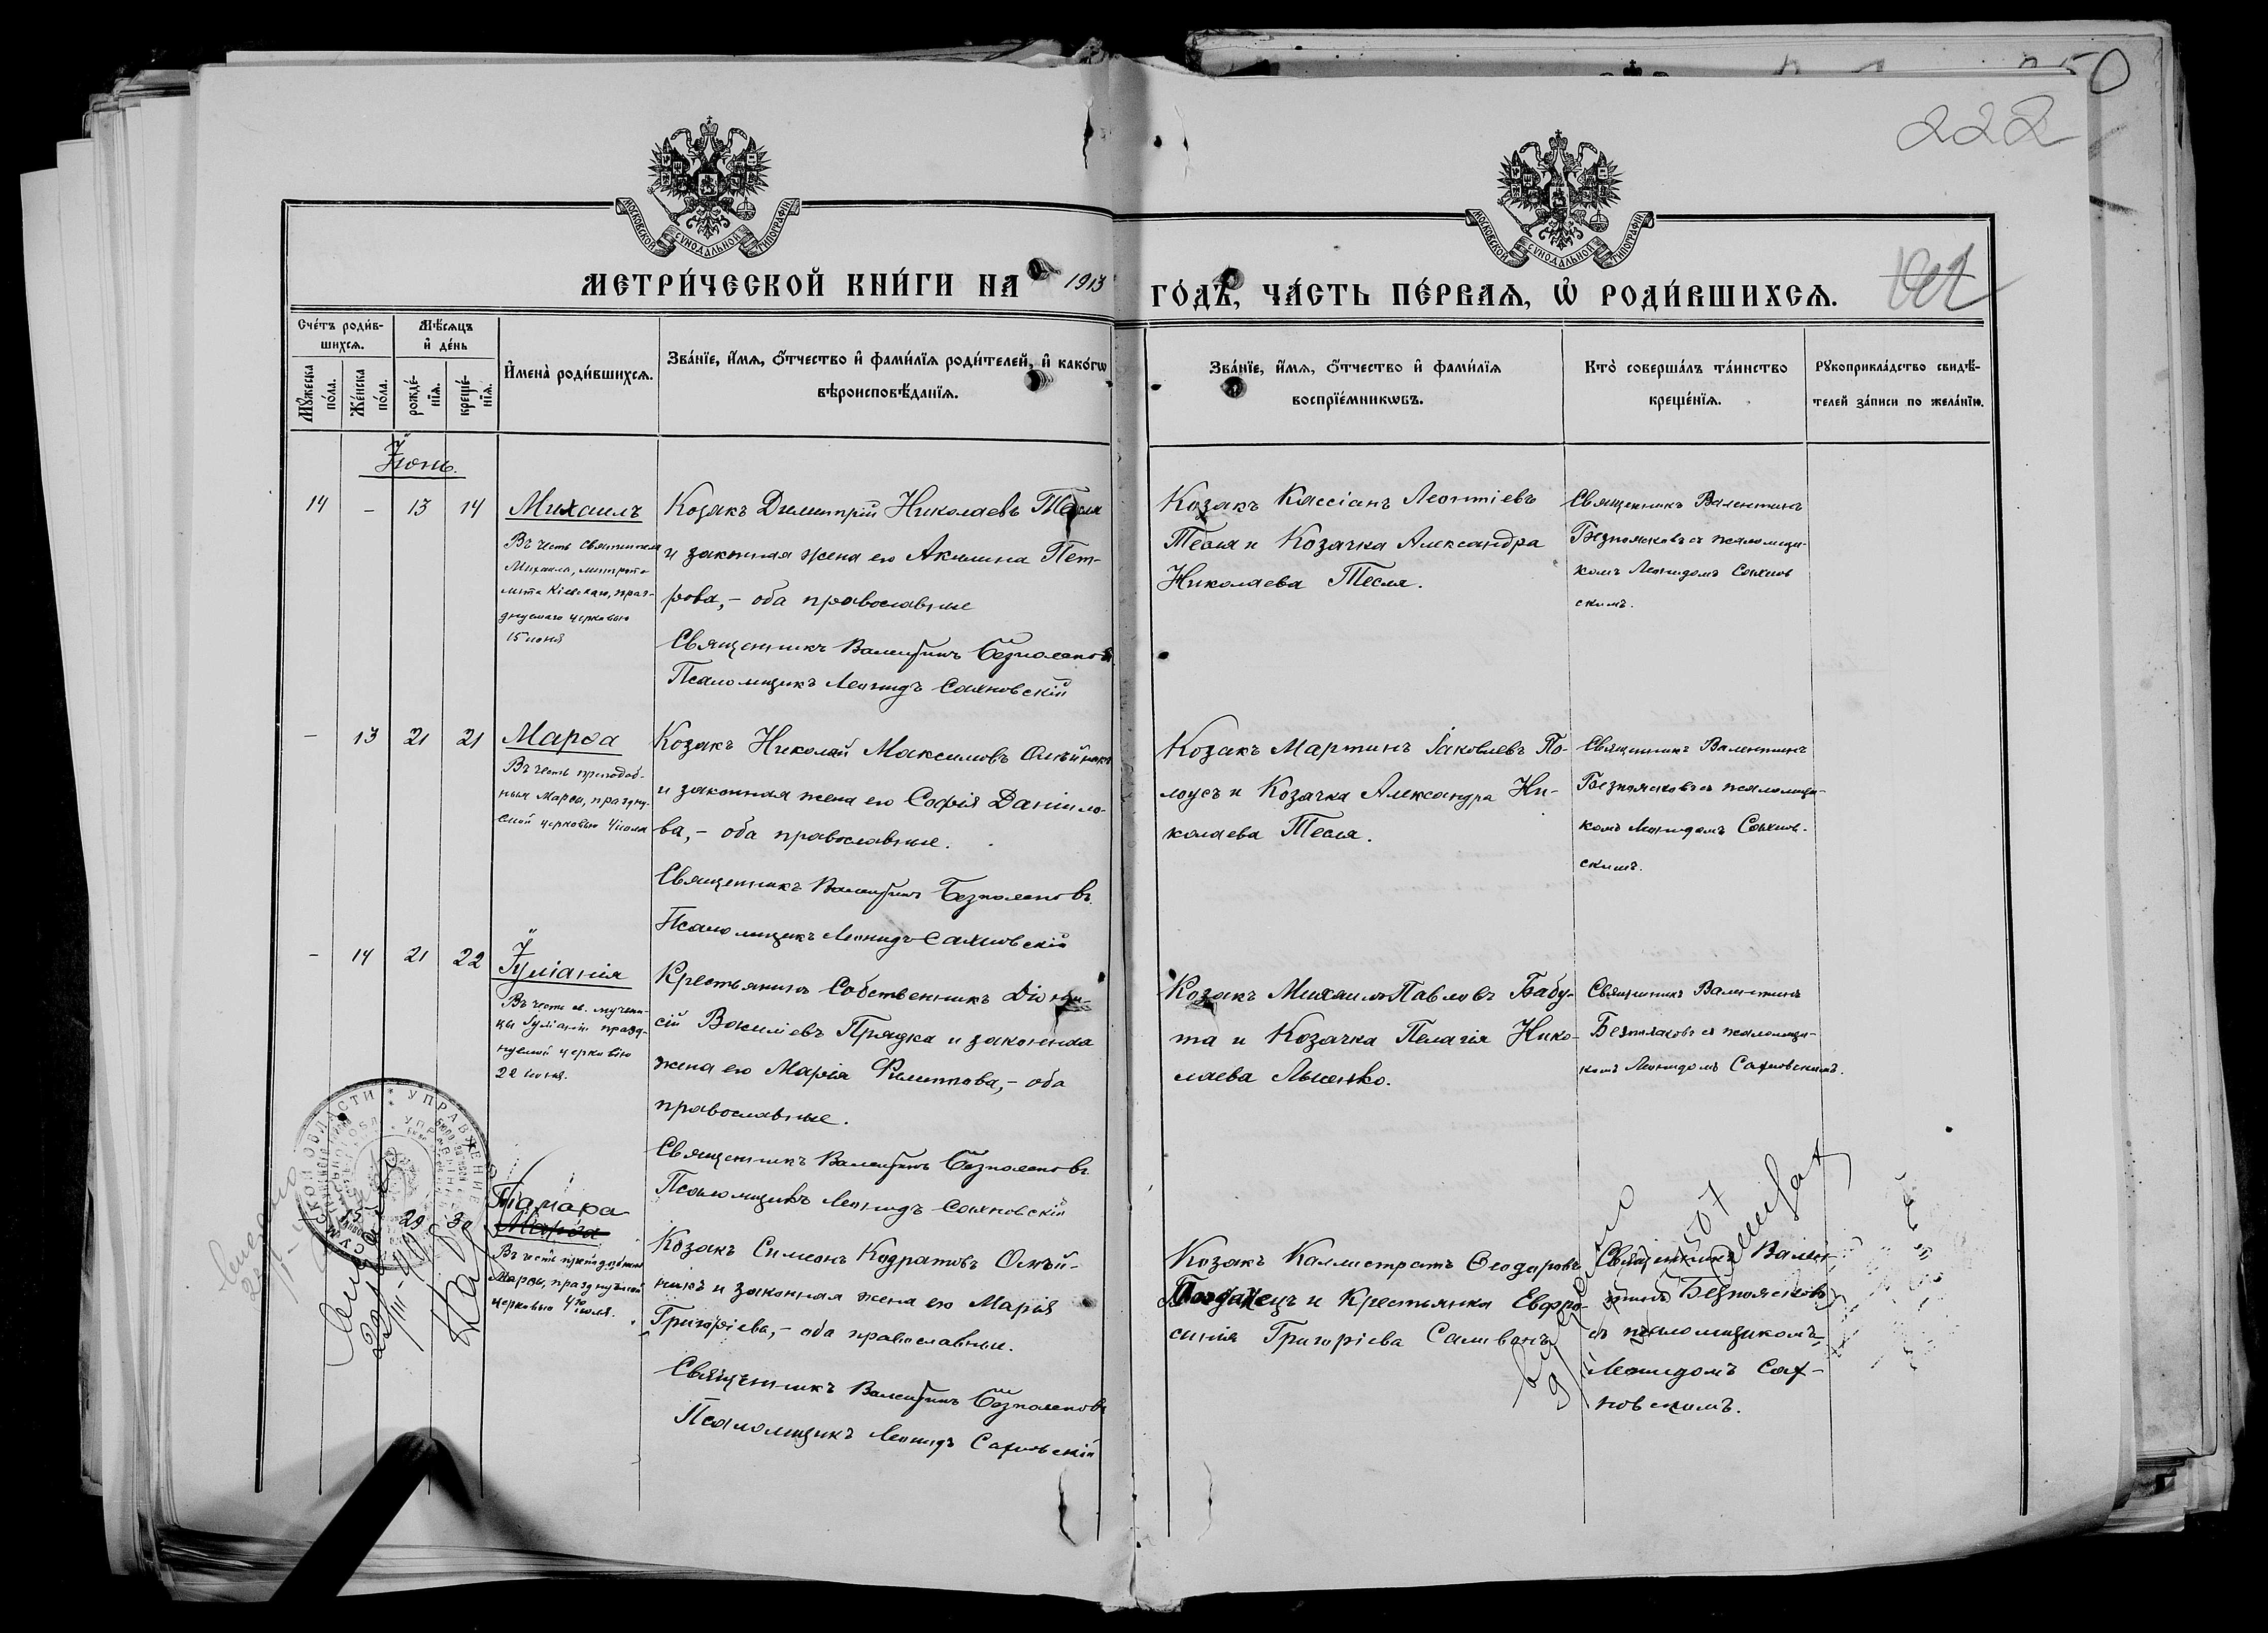 222
МОСКОВСКОЙ СУНОДАЛЬНОЙ ТИПОГРАФІИ
МОСКОВСКОЙ СУНОДАЛЬНОЙ ТИПОГРАФІИ
МЕТРИ́ЧЕСКОЙ КНИ́ГИ НА 1913
ГО́ДЪ, ЧА́СТЬ ПЕ́РВАѦ, Ѡ҆ РОДИ́ВШИХСѦ.
Сче́тъ роди́в-
шихсѧ.
Мѣ́сѧцъ
и҆ де́нь
Мꙋ́жеска
по́ла.
Же́нска
по́ла.
рожде́-
нїѧ.
креще́-
нїѧ.
И҆мена̀ роди́вшихсѧ.
Зва́нїе, и҆́мѧ, ѻ҆́тчество и҆ фами́лїѧ роди́телей, и҆ како́гѡ
вѣроисповѣ́данїѧ.
Зва́нїе, и҆́мѧ, ѻ҆́тчество и҆ фами́лїѧ
воспрїе́мникѡвъ.
Кто̀ соверша́лъ та́инство
креще́нїѧ.
Рꙋкоприкла́дство свидѣ́-
телей за́писи по жела́нїю.
Іюнь.
14 - 13 14
Михаилъ
Въ честь святителя
Михаила, митропо-
лита Кіевскаго, праз-
днуемаго церковью
15 июня
Козакъ Димитрій Николаевъ Тесля
и законная жена его Акилина Пет-
рова, - оба православные
Священникъ Валентинъ
Псаломщикъ Леонидъ Сахновскій
Козакъ Кассіанъ Леонтіевъ
Тесля и Козачка Александра
Николаева Тесля.
Священникъ Валентинъ
Безпоясковъ съ псаломщи-
комъ Леонидомъ Сахнов
скимъ.
- 13 21 21
Марѳа
Въ честь преподоб-
ныя Марѳы, праздну-
емой церковью 4 июля
Козакъ Николай Максимовъ Олѣйникъ
и законная жена его Софія Даніило-
ва, - оба православные.
Священникъ Валентинъ
Псаломщикъ Леонидъ Сахновскій
Козакъ Мартинъ Іаковлевъ По-
лоусъ и Козачка Александра Ни-
колаева Тесля.
Священникъ Валентинъ
Безпоясковъ съ псаломщи-
комъ Леонидомъ Сахнов-
скимъ.
- 14 21 22
Іуліанія
Въ честь св. мучени-
цы Іуліаніи празд-
нуемой церковію
22 июня.
Крестьянинъ Собственникъ Діони-
сій Василіевъ Прядка и законная
жена его Марія Филиппова, - оба
православные.
Священникъ Валентинъ
Псаломщикъ Леонидъ Сахновскій
Козакъ Михаилъ Павловъ Бабу-
та и Козачка Пелагія Нико-
лаева Лысенко.
Священникъ Валентинъ
Безпоясковъ съ псаломщи-
комъ Леонидомъ Сахновскимъ.
15 29 30
Тамара
Марѳа
Въ честь преподобной
Марѳы, празднуемой
церковью 4го июля.
Козакъ Симеонъ Кодратовъ Олѣй-
никъ и законная жена его Марія
Григоріева, - оба православные.
Священникъ Валентинъ
Псаломщикъ Леонидъ Сахновскій
Козакъ Каллистратъ Ѳеодоровъ
и Крестьянка Евфро-
синія Григоріева Саливонъ
Священникъ Вален-
тинъ Безпоясковъ
съ псаломщикомъ
Леонидомъ Сах-
новскимъ.